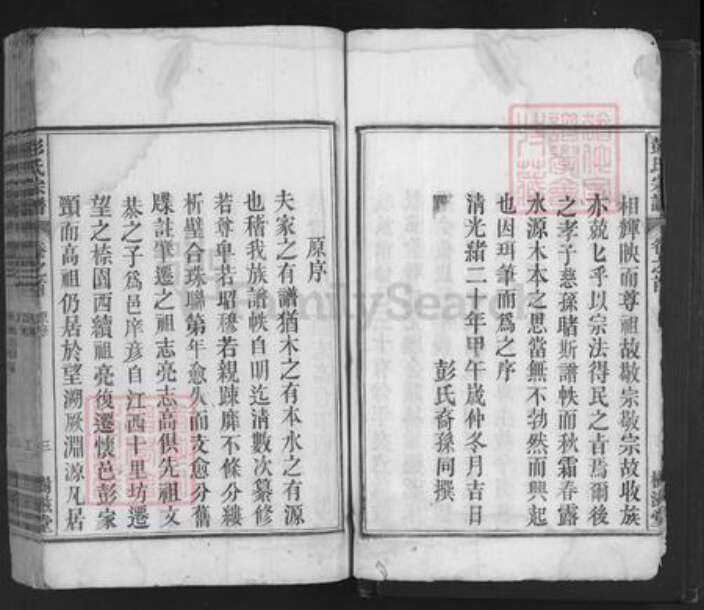 相輝映而尊祖故敬宗敬宗故收族
亦兢匕乎以宗法得民之旨焉爾後
之孝子慈孫睹斯譜帙而秋霜春露
水源木本之思當無不勃然而興起
也因珥筆而爲之序
清光緒二十年甲午歲仲冬月吉日
彭氏裔孫同撰
彭氏宗譜
卷之首
原序
夫家之有譜猶木之有本水之有源
也稽我族譜帙自明迄清數次纂修
若尊卑若昭穆若親踈靡不條分縷
析璧合珠聯第年愈久而支愈分舊
牒註肇遷之祖志亮志高俱先祖文
恭之子爲邑庠彦自江西十里坊遷
望之標園西續祖亮復遷懷邑彭家
頭而高祖仍居於望溯厥淵源凡居
彭氏宗譜
卷之首
三
FamilySearch